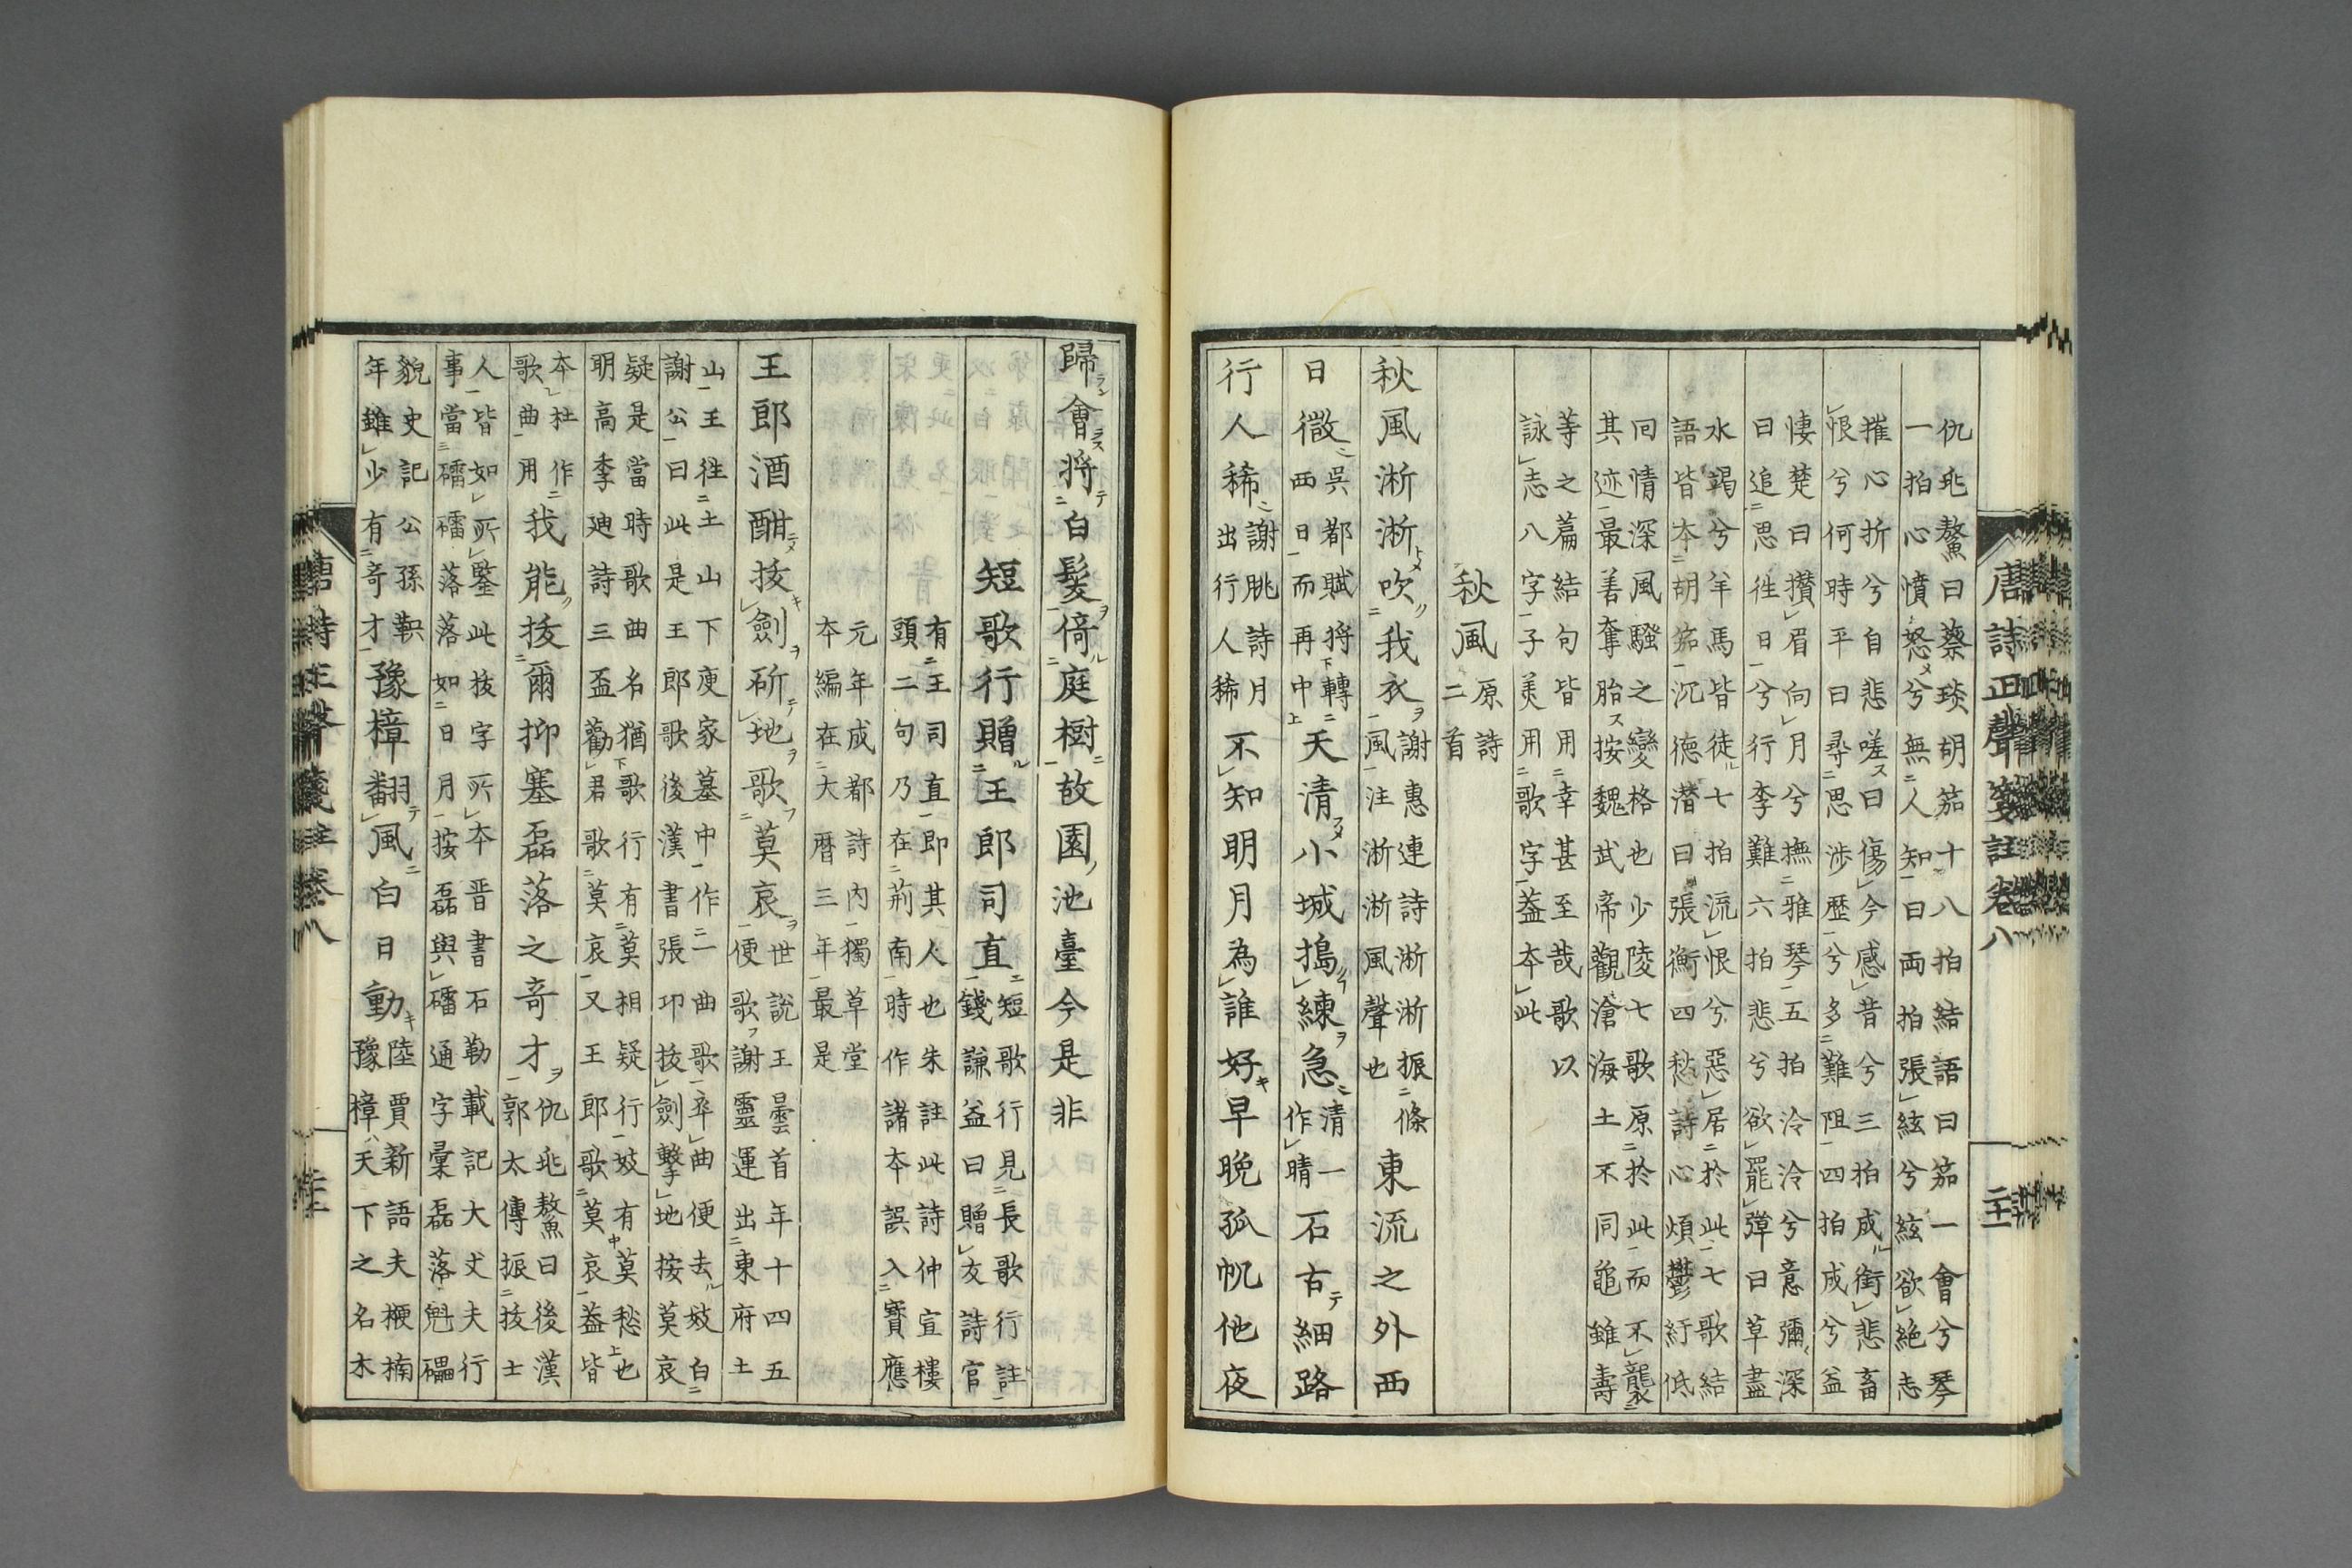 唐詩正聲箋註卷八
仇兆鰲曰蔡琰胡笳十八拍結語曰笳一會兮琴
一拍心憤怒兮無人知曰両拍張絃兮絃欲絕志
摧心折兮自悲嗟曰傷今感昔兮三拍成銜悲畜
恨兮何時平曰尋思涉歷兮多難阻四拍成兮益
悽楚曰攢眉向月兮撫雅琴五拍泠泠兮意彌深
曰追思徃日兮行李難六拍悲兮欲罷彈曰草盡
水竭兮羊馬皆徒七拍流恨兮惡居於此七歌結
語皆夲胡笳沉徳潜曰張衡四愁詩心煩鬱紆低
囘情深風騷之變格也少陵七歌原於此而不襲
其迹最善奪胎按魏武帝觀滄海土不同龜雖壽
等之篇結句皆用幸甚至哉歌以
詠志八字子美用歌字葢夲此
秋風原詩二首
秋風淅淅吹我衣謝惠連詩淅淅振條風注淅淅風聲也東流之外西
日微吳都賦將轉西日而再中天清小城搗練急清一作晴石古細路
行人稀謝朓詩月出行人稀不知明月為誰好早晚孤帆他夜
歸會將白髮倚庭樹故園池臺今是非
短歌行贈王郎司直短歌行見長歌行註錢謙益曰贈友詩官
有王司直即其人也朱註此詩仲宣樓
頭二句乃在荊南時作諸夲誤入寶應
元年成都詩內獨草堂
夲編在大曆三年最是
王郎酒酣拔劍斫地歌莫哀世説王曇首年十四五便歌謝靈運出東府土
山王徃土山下庾家墓中作一曲歌卒曲便去妓白
謝公曰此是王郎歌後漢書張卭拔劍擊地按莫哀
疑是當時歌曲名猶歌行有莫相疑行妓有莫愁也
明高季廸詩三盃勸君歌莫哀又王郎歌莫哀葢皆
夲杜作
歌曲用我能拔爾抑塞磊落之奇才仇兆鰲曰後漢郭太傳振拔士
人皆如所鑒此拔字所夲晋書石勒載記大丈夫行
事當礌礌落落如日月按磊與礌通字彙磊落魁礧
貌史記公孫軼年雖少有奇才豫樟翻風白日動陸賈新語夫楩楠豫樟天下之名木
唐詩正聲箋註卷八